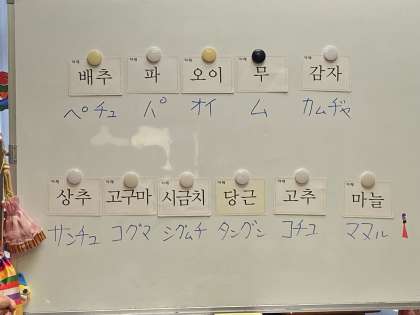 배추 파 오이 무 감자
ペチュ パ オイ ム カムヂャ
상추 고구마 시금치 당근 고추 마늘
サンチュ コグマ シグムチ タングン コチュ ママル